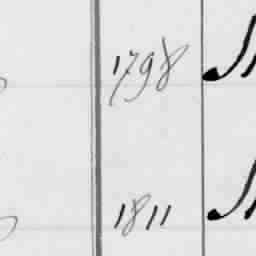 1798
1811